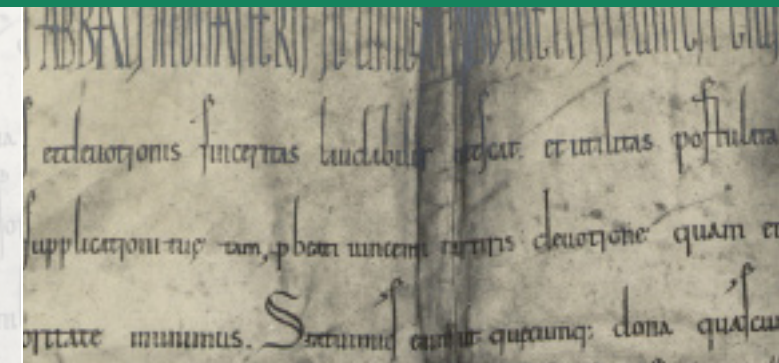 ABBATI MONASTERII
et deuotionis sinceritas laudabiliter et utilitas postulata
supplicationi tuę tam, p beati uincentii martiris deuotione quam et
oritate munimus. Statuimus ut quęcunq; dona